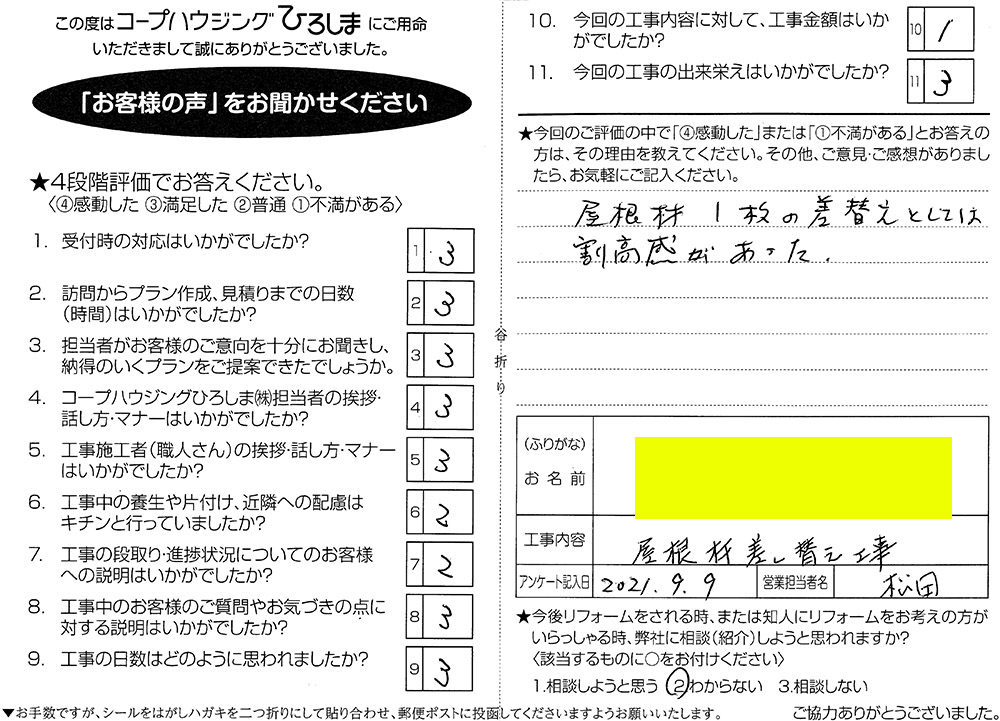 この度はコープハウジングひろしまにご用命
いただきまして誠にありがとうございました。
「お客様の声」をお聞かせください
★4段階評価でお答えください。
〈④感動した ③満足した ②普通 ①不満がある〉
1. 受付時の対応はいかがでしたか?
1 3
2. 訪問からプラン作成、見積りまでの日数
（時間）はいかがでしたか?
2 3
3. 担当者がお客様のご意向を十分にお聞きし、
納得のいくプランをご提案できたでしょうか。
3 3
4. コープハウジングひろしま㈱担当者の挨拶・
話し方・マナーはいかがでしたか?
4 3
5. 工事施工者（職人さん）の挨拶・話し方・マナー
はいかがでしたか?
5 3
6. 工事中の養生や片付け、近隣への配慮は
キチンと行っていましたか?
6 2
7. 工事の段取り・進捗状況についてのお客様
への説明はいかがでしたか?
7 2
8. 工事中のお客様のご質問やお気づきの点に
対する説明はいかがでしたか?
8 3
9. 工事の日数はどのように思われましたか?
9 3
▼お手数ですが、シールをはがしハガキを二つ折りにして貼り合わせ、郵便ポストに投函してくださいますようお願いいたします。
谷折り
10. 今回の工事内容に対して、工事金額はいか
がでしたか?
10 1
11. 今回の工事の出来栄えはいかがでしたか?
11 3
★今回のご評価の中で「④感動した」または「①不満がある」とお答えの
方は、その理由を教えてください。その他、ご意見・ご感想がありまし
たら、お気軽にご記入ください。
屋根材1枚の差替えとしては
割高感があった.
（ふりがな）
お名前
工事内容 屋根材差し替え工事
アンケート記入日 2021.9.9 営業担当者名 松田
★今後リフォームをされる時、または知人にリフォームをお考えの方が
いらっしゃる時、弊社に相談（紹介）しようと思われますか?
〈該当するものに○をお付けください〉
1.相談しようと思う ②わからない 3.相談しない
ご協力ありがとうございました。